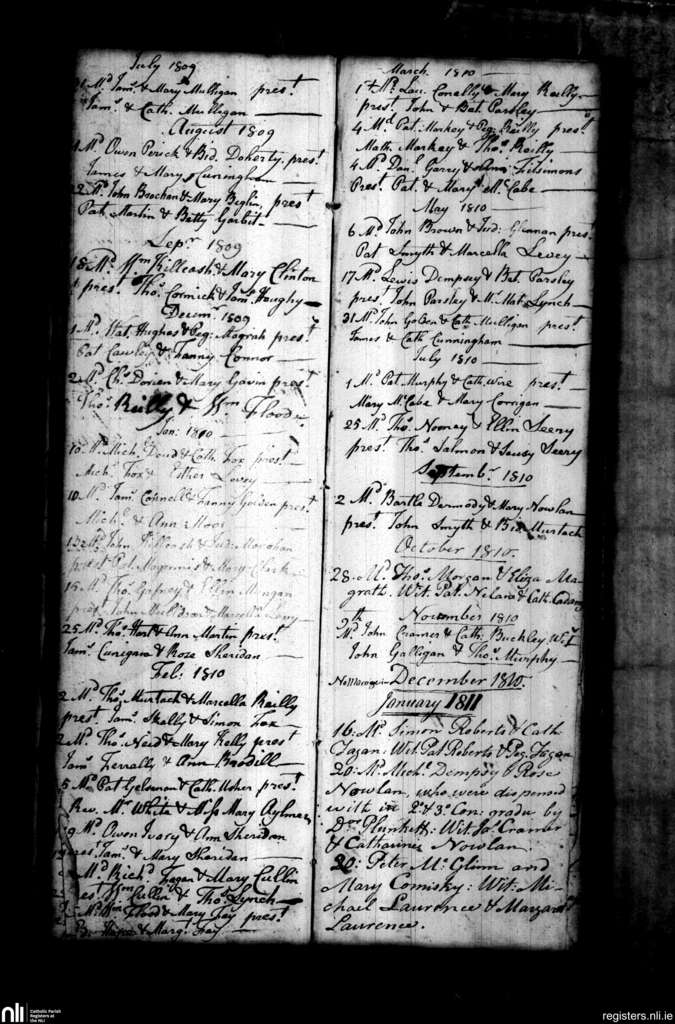 July 1809
Md Jams. & Mary Mulligan prest.
Jams. & Cath. Mulligan
August 1809
Md Owen & Bid. Doherty, prest.
James & Mary Cuningham
2 Md John Brochan & Mary Beglin, prest
Pat Martin & Betty
Sepr. 1809
18 Md Wm Killeash & Mary Clinton
prest. Thos. Cormick & Jams. Heughy
Decemr. 1809
1 Md Wat. Hughes & Peg: Magrah prest
Pat Cawley & Fanny Connor
2 Md Chs. Doren & Mary Gavin prest
Thos. Reilly & Wm Flood
Jan: 1810
10 Md Mich. Doud & Cath. Fox prest.
Mich. Fox & Esther Levey
10 Md Jams. Connell & Fanny Golden prest
Mich. & Ann Moor
13 Md John Killeash & Jud: Monahan
prest Pat & Mary Clark
15 Md Thos. Gafney & Ellin Mangan
prest John
25 Md Thos. Hart & Ann Martin prest.
Jams. Cunegam & Rose Sheridan
Feb: 1810
2 Md Thos. Murtach & Marcella Reilly
prest. Jams. Skelly & Simon Fox
2 Md Thos. Neid & Mary Kelly prest
Jams. Ferrally & Ann Brodell
5 Md Pat Gelsenan & Cath. Usher prest.
Rev. Mr. White & Miss Mary Aylmer
9 Md Owen Ivory & Ann Sheridan
prest. Jams. & Mary Sheridan
Md Richd. Fagan & Mary Cullin
prest Wm Cullin & Thos. Lynch
Md Wm Flood & Mary Fay prest.
& Marg. Fay
March 1810
1st Md Lau. Conelly & Mary Reilly
prest. John & Bet Parsley
4 Md Pat. Markey & Peg: Reilly prest
Math. Markey & Thos. Reilly
4 Md Danl. Garry & Fitsimons
Prest. Pat. & Mary McCabe
May 1810
6 Md John Brown & Jud: Glennan prest
Pat Smyth & Marcella Levey
17 Md Lewis Dempsey & Bet. Parsley
prest. John Parsley & Mr. Mat. Lynch
31 Md John Golden & Cath. Mulligan prest
James & Cath Cunningham
July 1810
1 Md Pat Murphy & Cath. Wire prest
Mary McCabe & Mary Corrigan
25 Md Thos. Nooney & Ellin Seery
prest. Thos. Salmon & Seery
Septembr. 1810
2 Md Bartle Dermody & Mary Nowlan
prest. John Smyth & Bid Murtach
October 1810.
28. Md. Thos. Morgan & Eliza Ma-
grath. Wit. Pat. & Cath.
9th November 1810
Md John Cramer & Cath. Buckley Wit
John Galligan & Thos. Murphy
No Marriages in December 1810.
January 1811
16: Md. Simon Roberts & Cath
Fagan: Wit. Pat Roberts & Peg. Fagan
20: Md Michl. Dempsy & Rose
Nowlan, who were dispensed
with in 2d & 3d Con: gradu by
Dor Plunkett: Wit. Jas. Cramer
& Catharine Nowlan.
20: Peter McGlinn and
Mary Comisky: Wit: Mi-
chael Laurence & Margaret
Laurence.
nli
Catholic Parish
Registers at
the NLI
registers.nli.ie